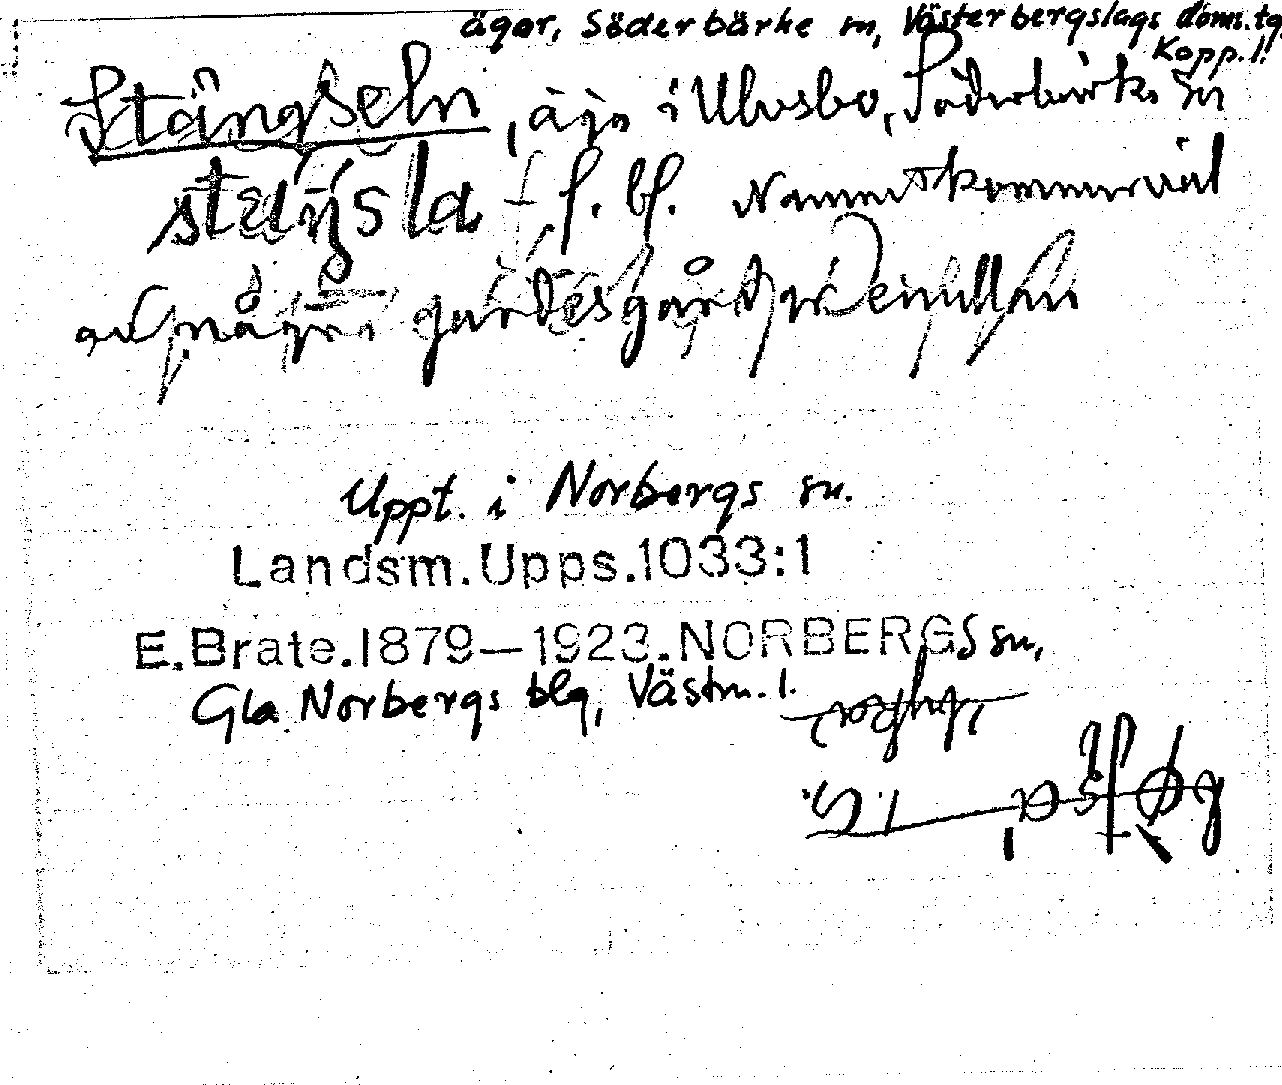 ägor, Söderbärke sn, Västerbergslags doms.tg.
Kopp.l.
Stängseln, äga i Ulvsbo, Söderbärke sn
stäŋsla f. bf. Namnet kommer väl
av några gärdesgårdar
Uppt. i Norbergs sn.
Landsm.Upps.1033:1
E.Brate.1879–1923.NORBERGS sn,
Gla Norbergs blg, Västm.l.